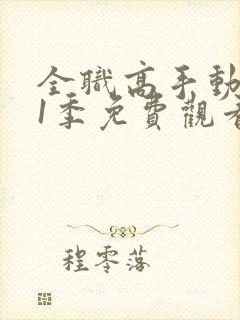 全職高手動
1季免費觀看
程零落